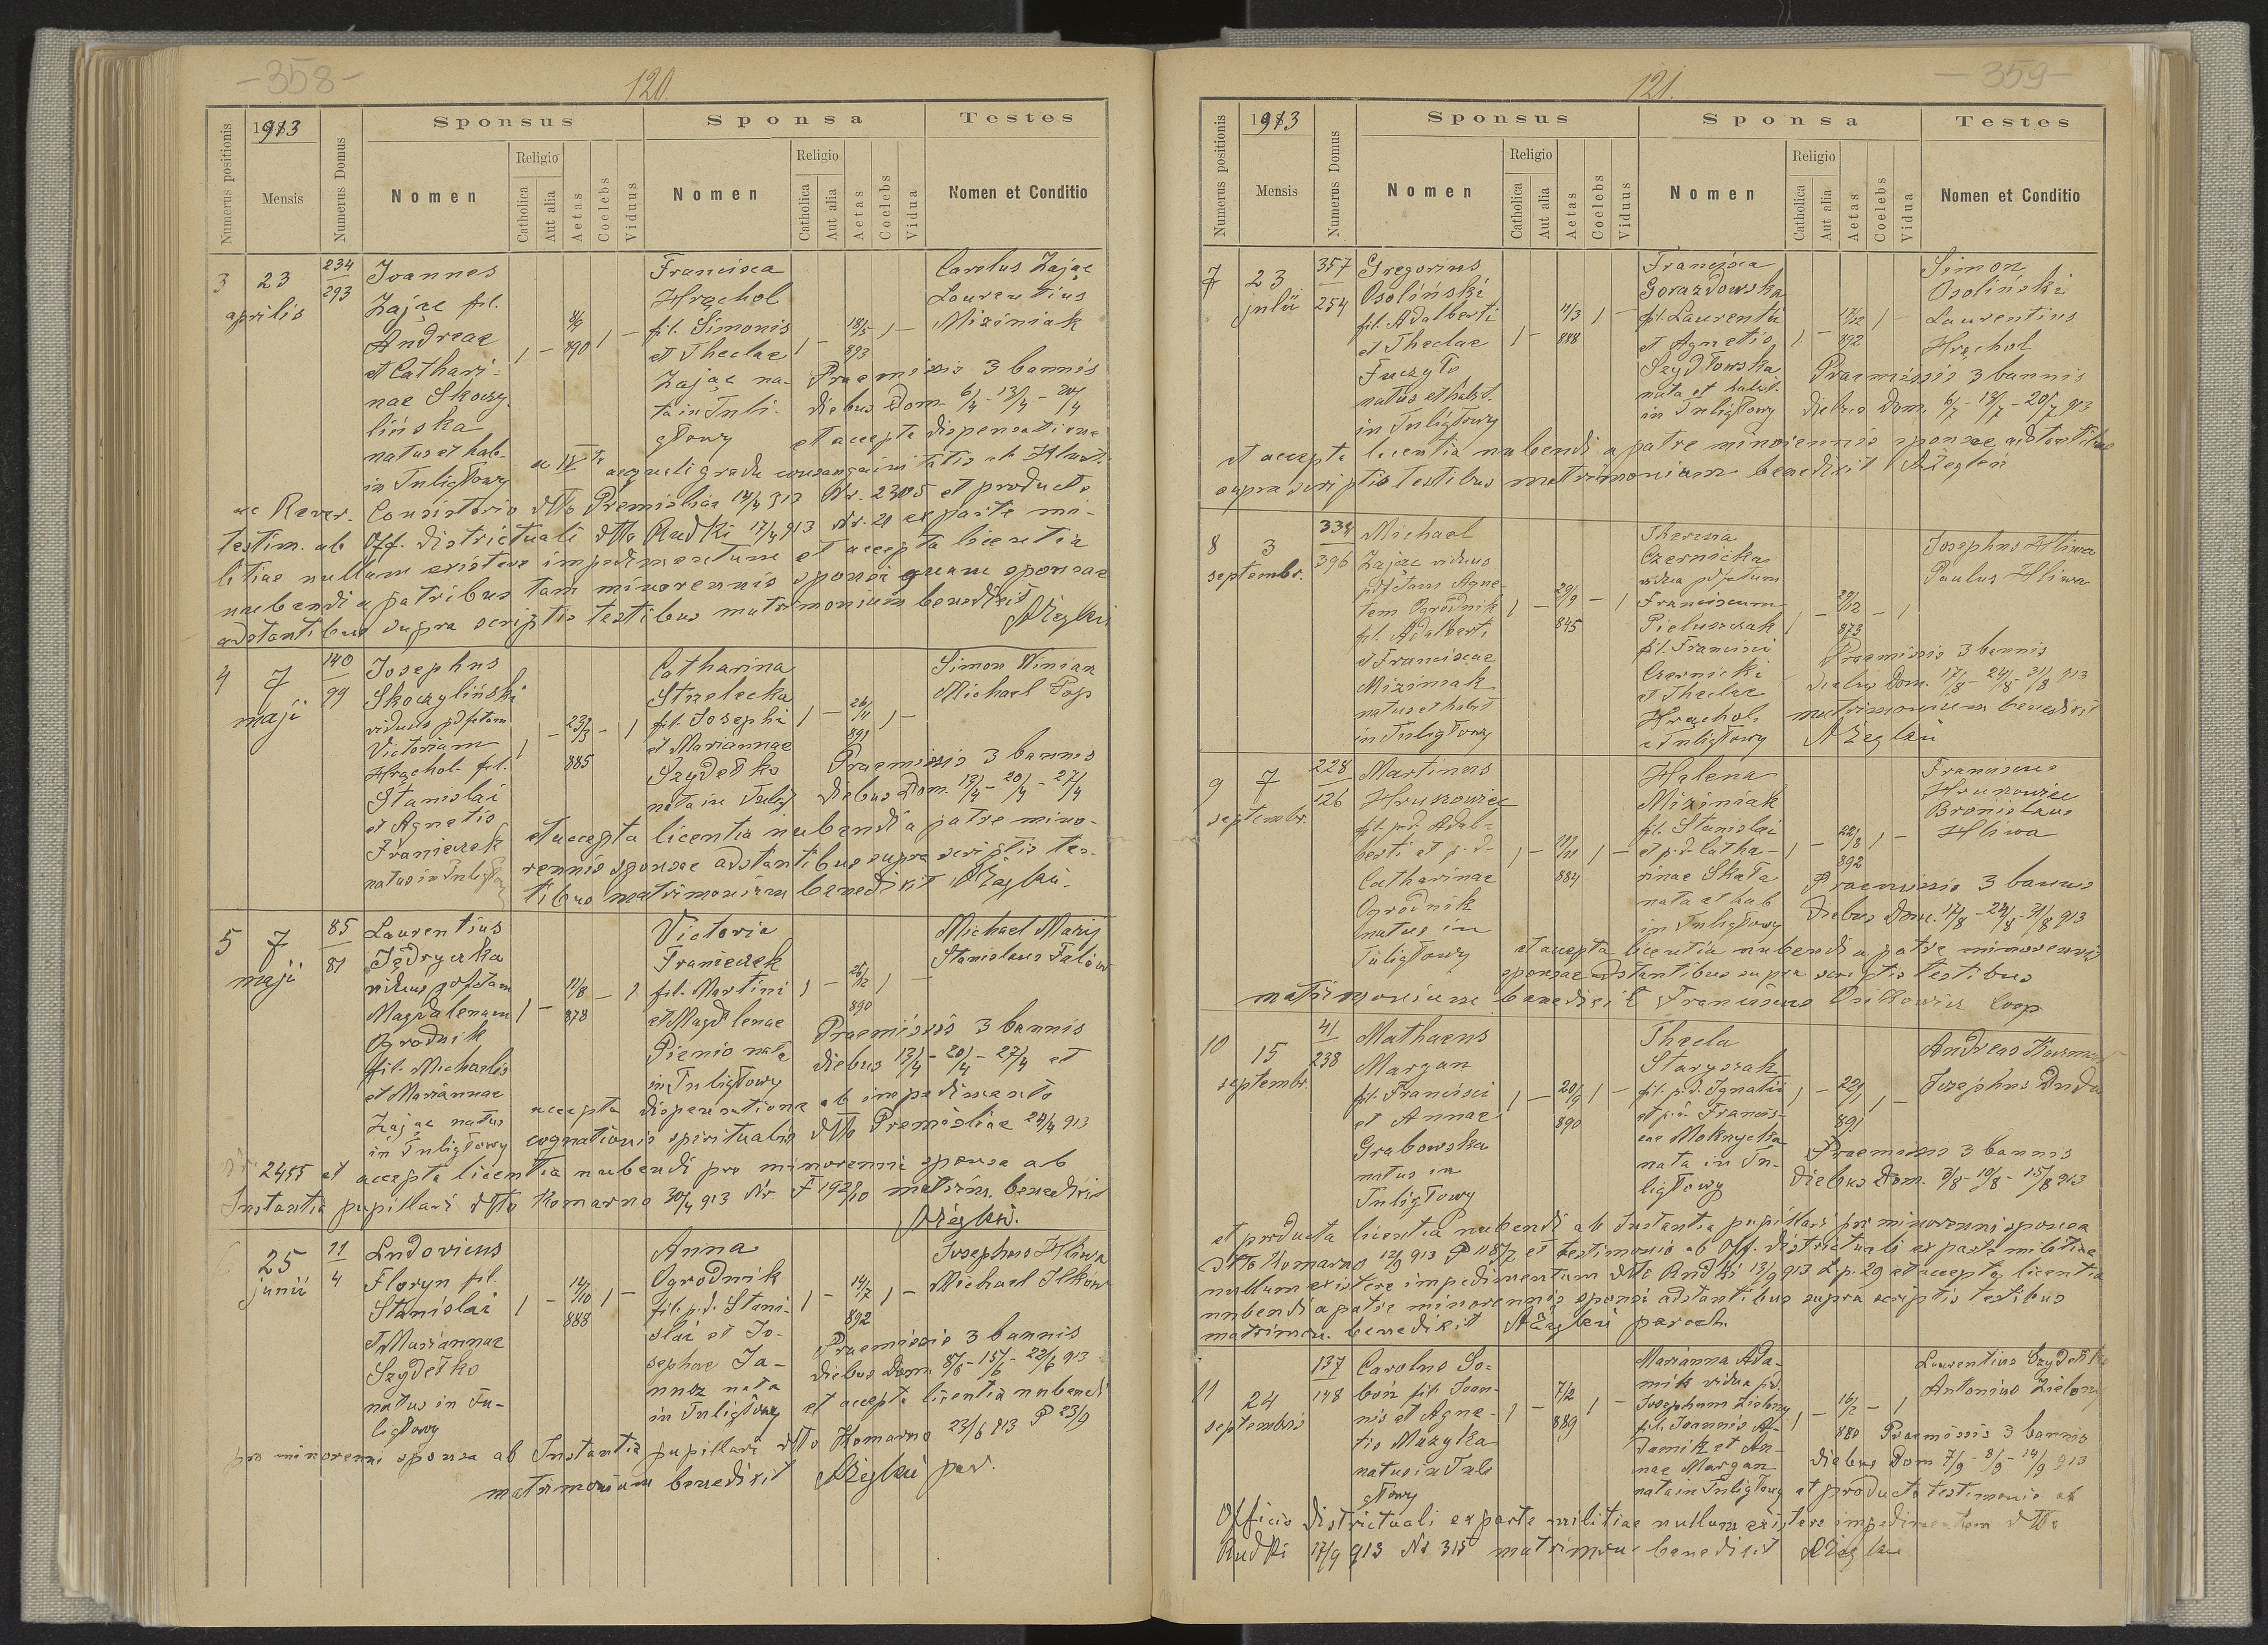 -358-
120.
Numerus positionis
1913
Mensis
Numerus Domus
Sponsus
Sponsa
Testes
Nomen
Religio
Catholica
Aut alia
Aetas
Coelebs
Viduus
Nomen
Religio
Catholica
Aut alia
Aetas
Coelebs
Vidua
Nomen et Conditio
3 23 aprilis
234
293
Joannes
Zając fil.
Andreae
et Cathari-
nae Skoczy-
lińska
natus et hab.
in Tuligłowy
1 - 890 1 -
Francisca
Hrąchol
fil. Simonis
et Theclae
Zając na-
ta in Tuli-
głowy
1 - 18/5 893 1 -
Carolus Zając
Laurentius
Miziniak
Praemissis 3 bannis
diebus Dom. 6/4 - 13/4 - 20/4
et accepta dispensatione
a IV to aequali gradu consanguinitatis ab Illust.
ac Rever. Consistorio dtto Premisliae 14/4 913 Nr. 2305 et producto
testim. ab Off. districtuali dtto Rudki 17/4 913 Nr. 20 ex parte mi-
litiae nullum existere impedimentum et accepta licentia
nubendi a patribus tam minorennis sponsi quam sponsae
adstantibus supra scriptis testibus matrimonium benedixit
4 7 maji
140
99
Josephus
Skoczyliński
viduus p. defctam
Victoriam
Hrąchol fil.
Stanislai
et Agnetis
Franieczek
natus in Tuligłowy
1 - 23/3 885 - 1
Catharina
Strzelecka
fil. Josephi
et Mariannae
Szydełko
nata in Tulig.
1 - 26/11 891 1 -
Simon Winiarz
Michael Pop
Praemissis 3 bannis
diebus Dom. 13/4 - 20/4 - 27/4
et accepta licentia nubendi a patre mino-
rennis sponsae adstantibus supra scriptis tes-
tibus matrimonium benedixit
5 7 maji
85
87
Laurentius
Jędryczka
viduus p. defctam
Magdalenam
Ogrodnik
fil. Michaelis
et Mariannae
Zając natus
in Tuligłowy
1 - 11/8 878 - 1
Victoria
Franieczek
fil. Martini
et Magdlenae
Pienio nata
in Tuligłowy
1 - 25/12 890 1 -
Michael Mazij
Stanislaus Falów
Praemissis 3 bannis
diebus 13/4 - 20/4 - 27/4 et
accepta dispensatione ab impedimento
cognationis spiritualis dtto Premisliae 24/4 913
Nr 2455 et accepta licentia nubendi pro minorenni sponsa ab
Instantia pupillari dtto Komarno 30/4 913 Nr. matrim. benedixit
25 junii
11
4
Ludovicus
Floryn fil.
Stanislai
et Mariannae
Szydełko
natus in Tu-
ligłowy
1 - 14/10 888 1 -
Anna
Ogrodnik
fil. p.d. Stani-
slai et Jo-
sephae Ja-
nusz nata
in Tuligłowy
1 - 14/7 892 1 -
Josephus Hliwa
Michael Ilkow
Praemissis 3 bannis
diebus Dom. 8/6 - 15/6 - 22/6 913
et accepta licentia nubendi
pro minorenni sponsa ab Instantia pupillari dtto Komarno 23/6 913 P 23/9
matrimonium benedixit par.
-359-
121.
Numerus positionis
1913
Mensis
Numerus Domus
Sponsus
Sponsa
Testes
Nomen
Religio
Catholica
Aut alia
Aetas
Coelebs
Viduus
Nomen
Religio
Catholica
Aut alia
Aetas
Coelebs
Vidua
Nomen et Conditio
7 23 julii
357
254
Gregorius
Osoliński
fil. Adalberti
et Theclae
Fuczyło
natus et habit.
in Tuligłowy
1 - 11/3 888 1 -
Francisca
Gorazdowska
fil. Laurentii
et Agnetis
Szydłowska
nata et habit.
in Tuligłowy
1 - 17/12 892 1 -
Simon
Osoliński
Laurentius
Hrąchol
Praemissis 3 bannis
diebus Dom. 6/7 - 13/7 - 20/7 913
et accepta licentia nubendi a patre minorennis sponsae adstantibus
supra scriptis testibus matrimonium benedixit
8 3 septembr.
334
396
Michael
Zając viduus
p. defctam Agne-
tem Ogrodnik
fil. Adalberti
et Franciscae
Miziniak
natus et habit
in Tuligłowy
1 - 29/9 845 - 1
Czernicka
vidua p. defctum
Franciscum
Pieluszczak
fil. Francisci
Czernicki
et Theclae
Hrąchol
e Tuligłowy
1 - 29/12 873 - 1
Josephus Hliwa
Paulus Hliwa
Praemissis 3 bannis
diebus Dom. 17/8 - 24/8 - 31/8 913
matrimonium benedixit
9 7 septembr.
228
126
Martinus
Hrunowiec
fil. p.d. Adal-
berti et p.d.
Catharinae
Ogrodnik
natus in
Tuligłowy
1 - 11/11 884 1 -
Helena
Miziniak
fil. Stanislai
et p.d. Catha-
rinae Skała
nata et hab
in Tuligłowy
1 - 22/8 892 1 -
Franciscus
Hrunowiec
Bronislaus
Hliwa
Praemissis 3 bannis
diebus Dom. 17/8 - 24/8 - 31/8 913
et accepta licentia nubendi a patre minorennis
sponsae adstantibus supra scriptis testibus
matrimonium benedixit Franciscus Coop
10 15 septembr.
41
238
Mathaeus
Margan
fil. Francisci
et Annae
Grabowska
natus in
Tuligłowy
1 - 20/9 890 1 -
Thecla
Staryszak
fil. p.d. Ignatii
et p.d. Francis-
cae Moknycka
nata in Tu-
ligłowy
1 - 22/1 891 1 -
Andreas
Josephus Duda
Praemissis 3 bannis
diebus Dom. 3/8 - 10/8 - 15/8 913
et producta licentia nubendi ab Instantia pupillari pro minorenni sponsa
dtto Komarno 12/9 913 P 118/7 et testimonio ab Off. districtuali ex parte militiae
nullum existere impedimentum dtto Rudki 13/9 913 L.p. 29 et accepta licentia
nubendi a patre minorennis sponsi adstantibus supra scriptis testibus
matrimon. benedixit paroch.
11 24 septembris
137
148
Carolus So-
boń fil. Joan-
nis et Agne-
tis Muzyka
natus in Tuli
głowy
1 - 7/2 889 1 -
Marianna Ada-
mik vidua p.d.
Josephum Zielony
fil. Joannis A-
damik et An-
nae Margan
nata in Tuligłowy
1 - 10/2 880 - 1
Laurentius Szydełko
Antonius Zielony
Praemissis 3 bannis
diebus Dom 7/9 - 8/9 - 14/9 913
et producto testimonio ab
Officio districtuali ex parte militiae nullum existere impedimentum dtto
Rudki 17/9 913 Nr 315 matrimon. benedixit